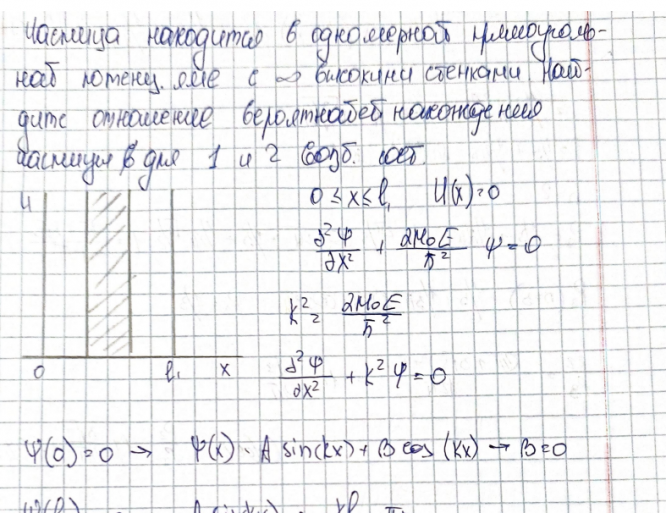 Частица находится в одномерной прямоуголь-
ной потенц. яме с ∞ высокими стенками. Най-
дите отношение вероятностей нахождения
частицы в для 1 и 2 возб. сост.
U
0 ≤ x ≤ l, U(x)=0
∂²Ψ/∂x² + 2m₀E/ħ² Ψ = 0
k² = 2m₀E/ħ²
0 l, x
∂²Ψ/∂x² + k² Ψ = 0
Ψ(0)=0 → Ψ(x) = A sin(kx) + B cos(kx) → B=0